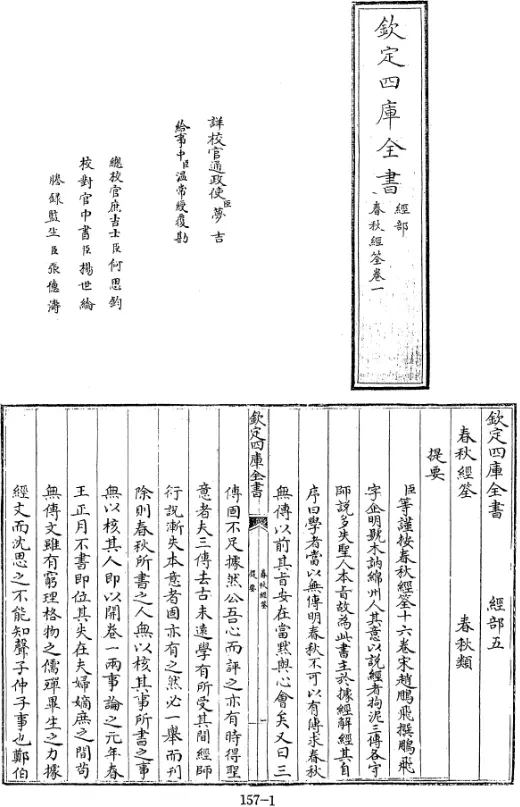 欽定四庫全書
經部
春秋經筌卷一
詳校官通政使臣夢吉
給事中臣溫常綬覆勘
總校官庶吉士臣何思鈞
校對官中書臣楊世綸
謄錄監生臣張德濤
欽定四庫全書 經部五
春秋經筌 春秋類
提要
臣等謹按春秋經筌十六卷宋趙鵬飛撰鵬飛
字企明號木訥綿州人其意以說經者拘泥三傳各守
師說多失聖人本旨故為此書主於據經解經其自
序曰學者當以無傳明春秋不可以有傳求春秋
無傳以前其旨安在當默與心會矣又曰三
欽定四庫全書
春秋經筌
提要
傳固不足據然公吾心而評之亦有時得聖
意者夫三傳去古未遠學有所受其間經師
衍說漸失本意者固亦有之然必一舉而刋
除則春秋所書之人無以核其事所書之事
無以核其人即以開卷一兩事論之元年春
王正月不書即位其失在夫婦嫡庶之間苟
無傳文雖有窮理格物之儒殫畢生之力據
經文而沈思之不能知聲子仲子事也鄭伯
157-1